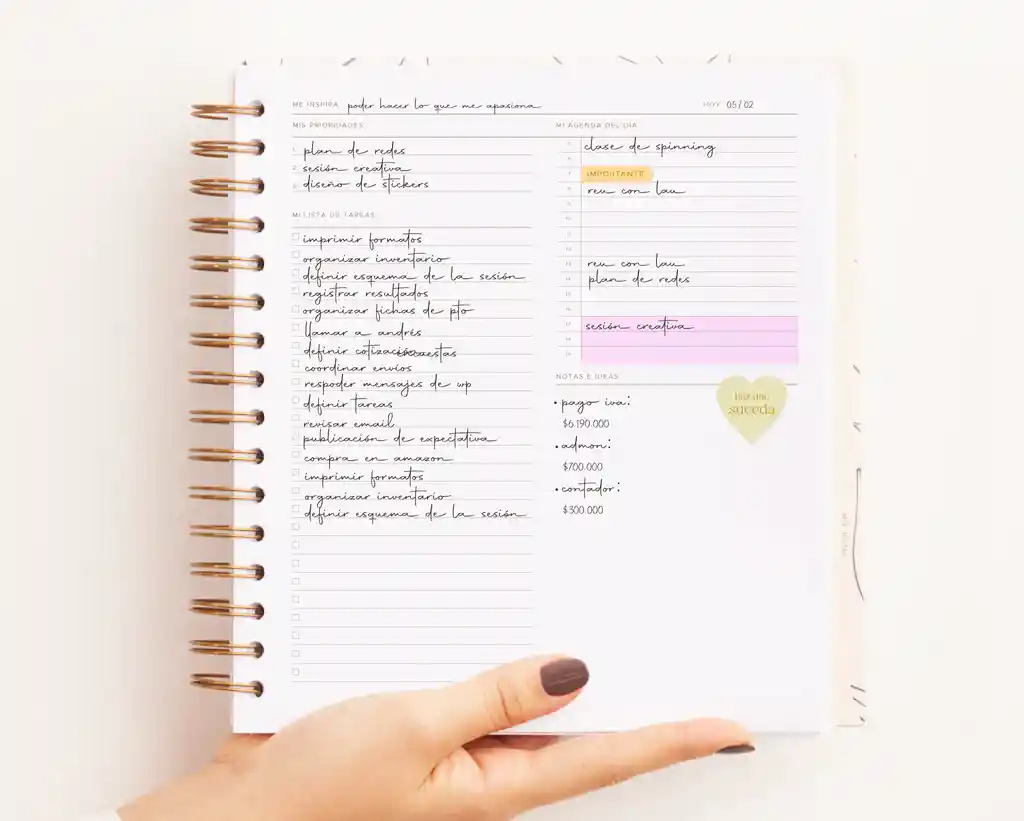 ME INSPIRA poder hacer lo que me apasiona
HOY 05/02
MIS PRIORIDADES
1 plan de redes
2 sesión creativa
3 diseño de stickers
MI LISTA DE TAREAS
imprimir formatos
organizar inventario
definir esquema de la sesión
registrar resultados
organizar fichas de pto
llamar a andrés
definir
coordinar envíos
respoder mensajes de wp
definir tareas
revisar email
publicación de expectativa
compra en amazon
imprimir formatos
organizar inventario
definir esquema de la sesión
MI AGENDA DEL DÍA
5 clase de spinning
6
7 IMPORTANTE
8 reu con lau
9
10
11
12
13 reu con lau
14 plan de redes
15
16
17 sesión creativa
18
19
NOTAS E IDEAS
• pago iva:
$6.190.000
• admon:
$700.000
• contador:
$300.000
suceda